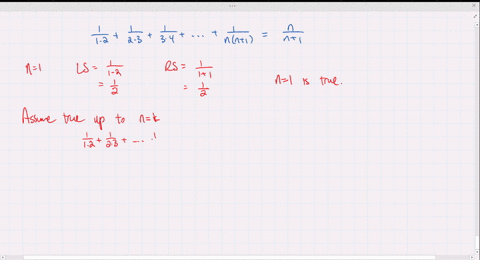 1/(1·2) + 1/(2·3) + 1/(3·4) + ... + 1/(n(n+1)) = n/(n+1)
n=1 LS = 1/(1·2) RS = 1/(1+1)
= 1/2 = 1/2 n=1 is true.
Assume true up to n=k
1/(1·2) + 1/(2·3) + ...